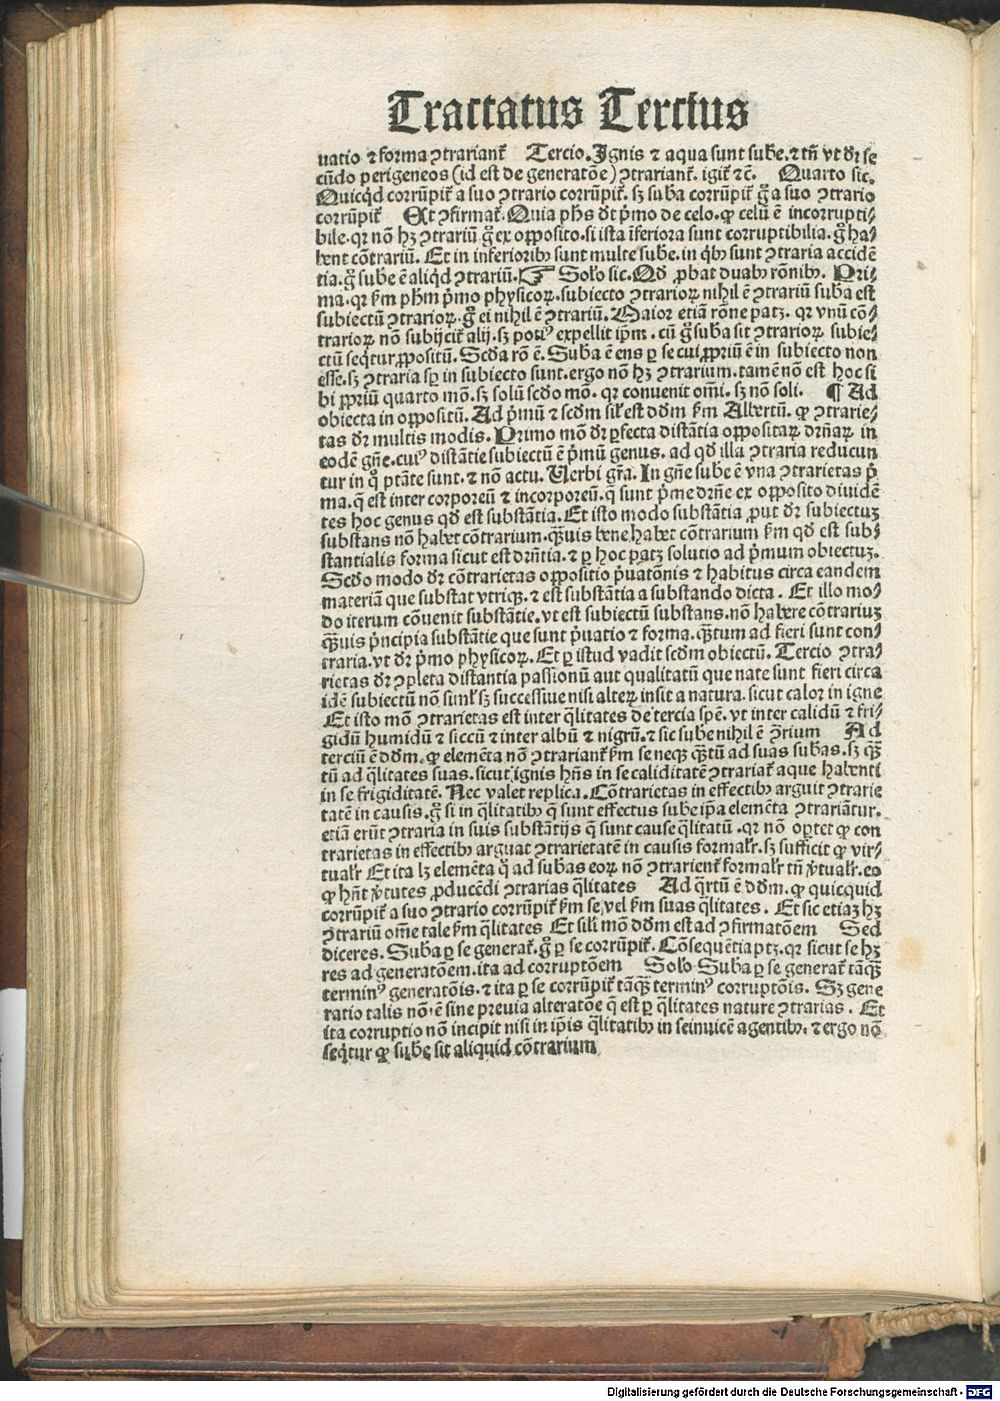 Tractatus Tercius
uatio ⁊ forma ꝯtrariant̃ Tercio. Ignis ⁊ aqua sunt sube. ⁊ tñ vt dr̃ se
cũdo perigeneos (id est de generatõe) ꝯtrariant̃. igit̃ ⁊c̃. Quarto sic.
Quicqͥd corrũpit̃ a suo ꝯtrario corrũpit̃. sꝫ suba corrũpit̃ gͦ a suo ꝯtrario
corrũpit̃ Et ꝯfirmat̃. Quia phs dt pͥmo de celo. ꝙ celũ ẽ incorrupti⸗
bile. qꝛ nõ hꝫ ꝯtrariũ gͦ ex opposito. si ista ĩferiora sunt corruptibilia. gͦ ha⸗
bent cõtrariũ. Et in inferioribꝰ sunt multe sube. in qͥbꝰ sunt ꝯtraria accidẽ
tia. gͦ sube ẽ aliqͥd ꝯtrariũ. ☞ Soluo sic. Qd ꝓbat duabꝰ rõnibꝰ. Pri⸗
ma. qꝛ ẜm phm pͥmo physicoꝝ. subiecto ꝯtrarioꝝ nihil ẽ ꝯtrariũ suba est
subiectũ ꝯtrarioꝝ. gͦ ei nihil ẽ ꝯtrariũ. Maior etiã rõne patꝫ. qꝛ vnũ cõ⸗
trarioꝝ nõ subijcit̃ alij. sꝫ potiꝰ expellit ip̃m. cũ gͦ suba sit ꝯtrarioꝝ subie⸗
ctũ seqͥtur ꝓpositũ. Scd̃a rõ ẽ. Suba ẽ ens ꝑ se cui ꝓpriũ ẽ in subiecto non
esse. sꝫ ꝯtraria sꝑ in subiecto sunt. ergo nõ hꝫ ꝯtrarium. tamẽ nõ est hoc si
bi ꝓpriũ quarto mõ. sꝫ solũ scd̃o mõ. qꝛ conuenit om̃i. sꝫ nõ soli. ¶ Ad
obiecta in oppositũ. Ad pͥmũ ⁊ scd̃m sil̃ est dd̃m ẜm Albertũ. ꝙ ꝯtrarie⸗
tas dr̃ multis modis. Primo mõ dr̃ ꝑfecta distãtia oppositaꝝ drñaꝝ in
eodẽ gñe. cuiꝰ distãtie subiectũ ẽ pͥmũ genus. ad qd̃ illa ꝯtraria reducun
tur in qͦ ptãte sunt. ⁊ nõ actu. Verbi gr̃a. In gñe sube ẽ vna ꝯtrarietas pͥ
ma. q̃ est inter corporeũ ⁊ incorporeũ. q̃ sunt pͥme drñe ex opposito diuidẽ
tes hoc genus qd̃ est substãtia. Et isto modo substãtia ꝓut dr̃ subiectuꝫ
substans nõ habet cõtrarium. quãuis bene habet cõtrarium ẜm qd̃ est sub⸗
stantialis forma sicut est drñtia. ⁊ ꝑ hoc patꝫ solutio ad pͥmum obiectuꝫ.
Scd̃o modo dr̃ cõtrarietas oppositio pͥuatõnis ⁊ habitus circa eandem
materiã que substat vtriqꝫ. ⁊ est substãtia a substando dicta. Et illo mo⸗
do iterum cõuenit substãtie. vt est subiectũ substans. nõ habere cõtrariuꝫ
quãuis pͥncipia substãtie que sunt pͥuatio ⁊ forma. quãtum ad fieri sunt con⸗
traria. vt dr̃ pͥmo physicoꝝ. Et ꝑ istud vadit scd̃m obiectũ. Tercio ꝯtra⸗
rietas dr̃ ꝯpleta distantia passionũ aut qualitatũ que nate sunt fieri circa
idẽ subiectũ nõ simĺ sꝫ successiue nisi alteꝝ insit a natura. sicut calor in igne
Et isto mõ ꝯtrarietas est inter q̃litates de tercia spẽ. vt inter calidũ ⁊ fri⸗
gidũ humidũ ⁊ siccũ ⁊ inter albũ ⁊ nigrũ. ⁊ sic sube nihil ẽ ꝯ̃rium Ad
terciũ ẽ dd̃m. ꝙ elemẽta nõ ꝯtrariant̃ ẜm se neqꝫ quãtũ ad suas subas. sꝫ quã
tũ ad q̃litates suas. sicut ignis hñs in se caliditatẽ ꝯtrariat̃ aque habenti
in se frigiditatẽ. Nec valet replica. Cõtrarietas in effectibꝰ arguit ꝯtrarie
tatẽ in causis. gͦ si in q̃litatibꝰ q̃ sunt effectus sube ip̃a elemẽta ꝯtrariãtur.
etiã erũt ꝯtraria in suis substãtijs q̃ sunt cause q̃litatũ. qꝛ nõ oꝑtet ꝙ con
trarietas in effectibꝰ arguat ꝯtrarietatẽ in causis formalr̃. sꝫ sufficit ꝙ vir⸗
tualr̃ Et ita lꝫ elemẽta qͦ ad subas eoꝝ nõ ꝯtrarient̃ formalr̃ tñ ṽtualr̃. eo
ꝙ hñt ṽtutes ꝓducẽdi ꝯtrarias q̃litates Ad q̃rtũ ẽ dd̃m. ꝙ quicquid
corrũpit̃ a suo ꝯtrario corrũpit̃ ẜm se, vel ẜm suas q̃litates. Et sic etiaꝫ hꝫ
ꝯtrariũ om̃e tale ẜm q̃litates Et sili mõ dd̃m est ad ꝯfirmatõem Sed
diceres. Suba ꝑ se generat̃. gͦ ꝑ se corrũpit̃. Cõsequẽtia ptꝫ. qꝛ sicut se hꝫ
res ad generatõem. ita ad corruptõem Soluo Suba ꝑ se generat̃ tãquã
terminꝰ generatõis. ⁊ ita ꝑ se corrũpit̃ tãquã terminꝰ corruptõis. Sꝫ gene
ratio talis nõ ẽ sine preuia alteratõe q̃ est ꝑ q̃litates nature ꝯtrarias. Et
ita corruptio nõ incipit nisi in ip̃is q̃litatibꝰ in seinuicẽ agentibꝰ. ⁊ ergo nõ
seqͥtur ꝙ sube sit aliquid cõtrarium
Digitalisierung gefördert durch die Deutsche Forschungsgemeinschaft - DFG